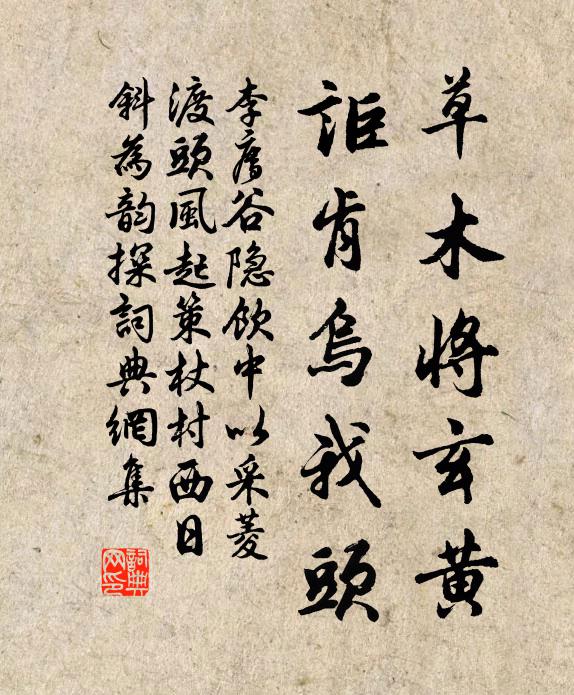 草木將玄黃
詎肯烏我頭
李䧹谷隐飲中以采菱
渡頭風起策杖村西日
斜為韵探詞典網集
詞典網印